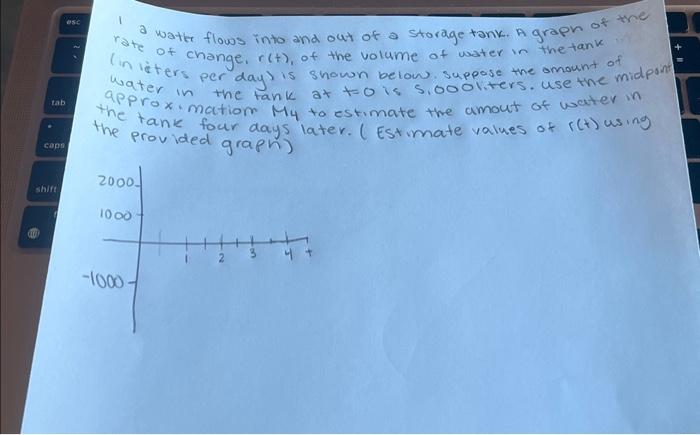 1 a water flows into and out of a storage tank. A graph of the
rate of change, r(t), of the volume of water in the tank
(in leters per day) is shown below. Suppose the amount of
water in the tank at t=0 is 5,000 liters. use the midpoint
approximation M4 to estimate the amout of water in
the tank four days later. (Estimate values of r(t) using
the provided graph)
2000
1000
1 2 3 4 t
-1000
esc
tab
caps
shift
+
=